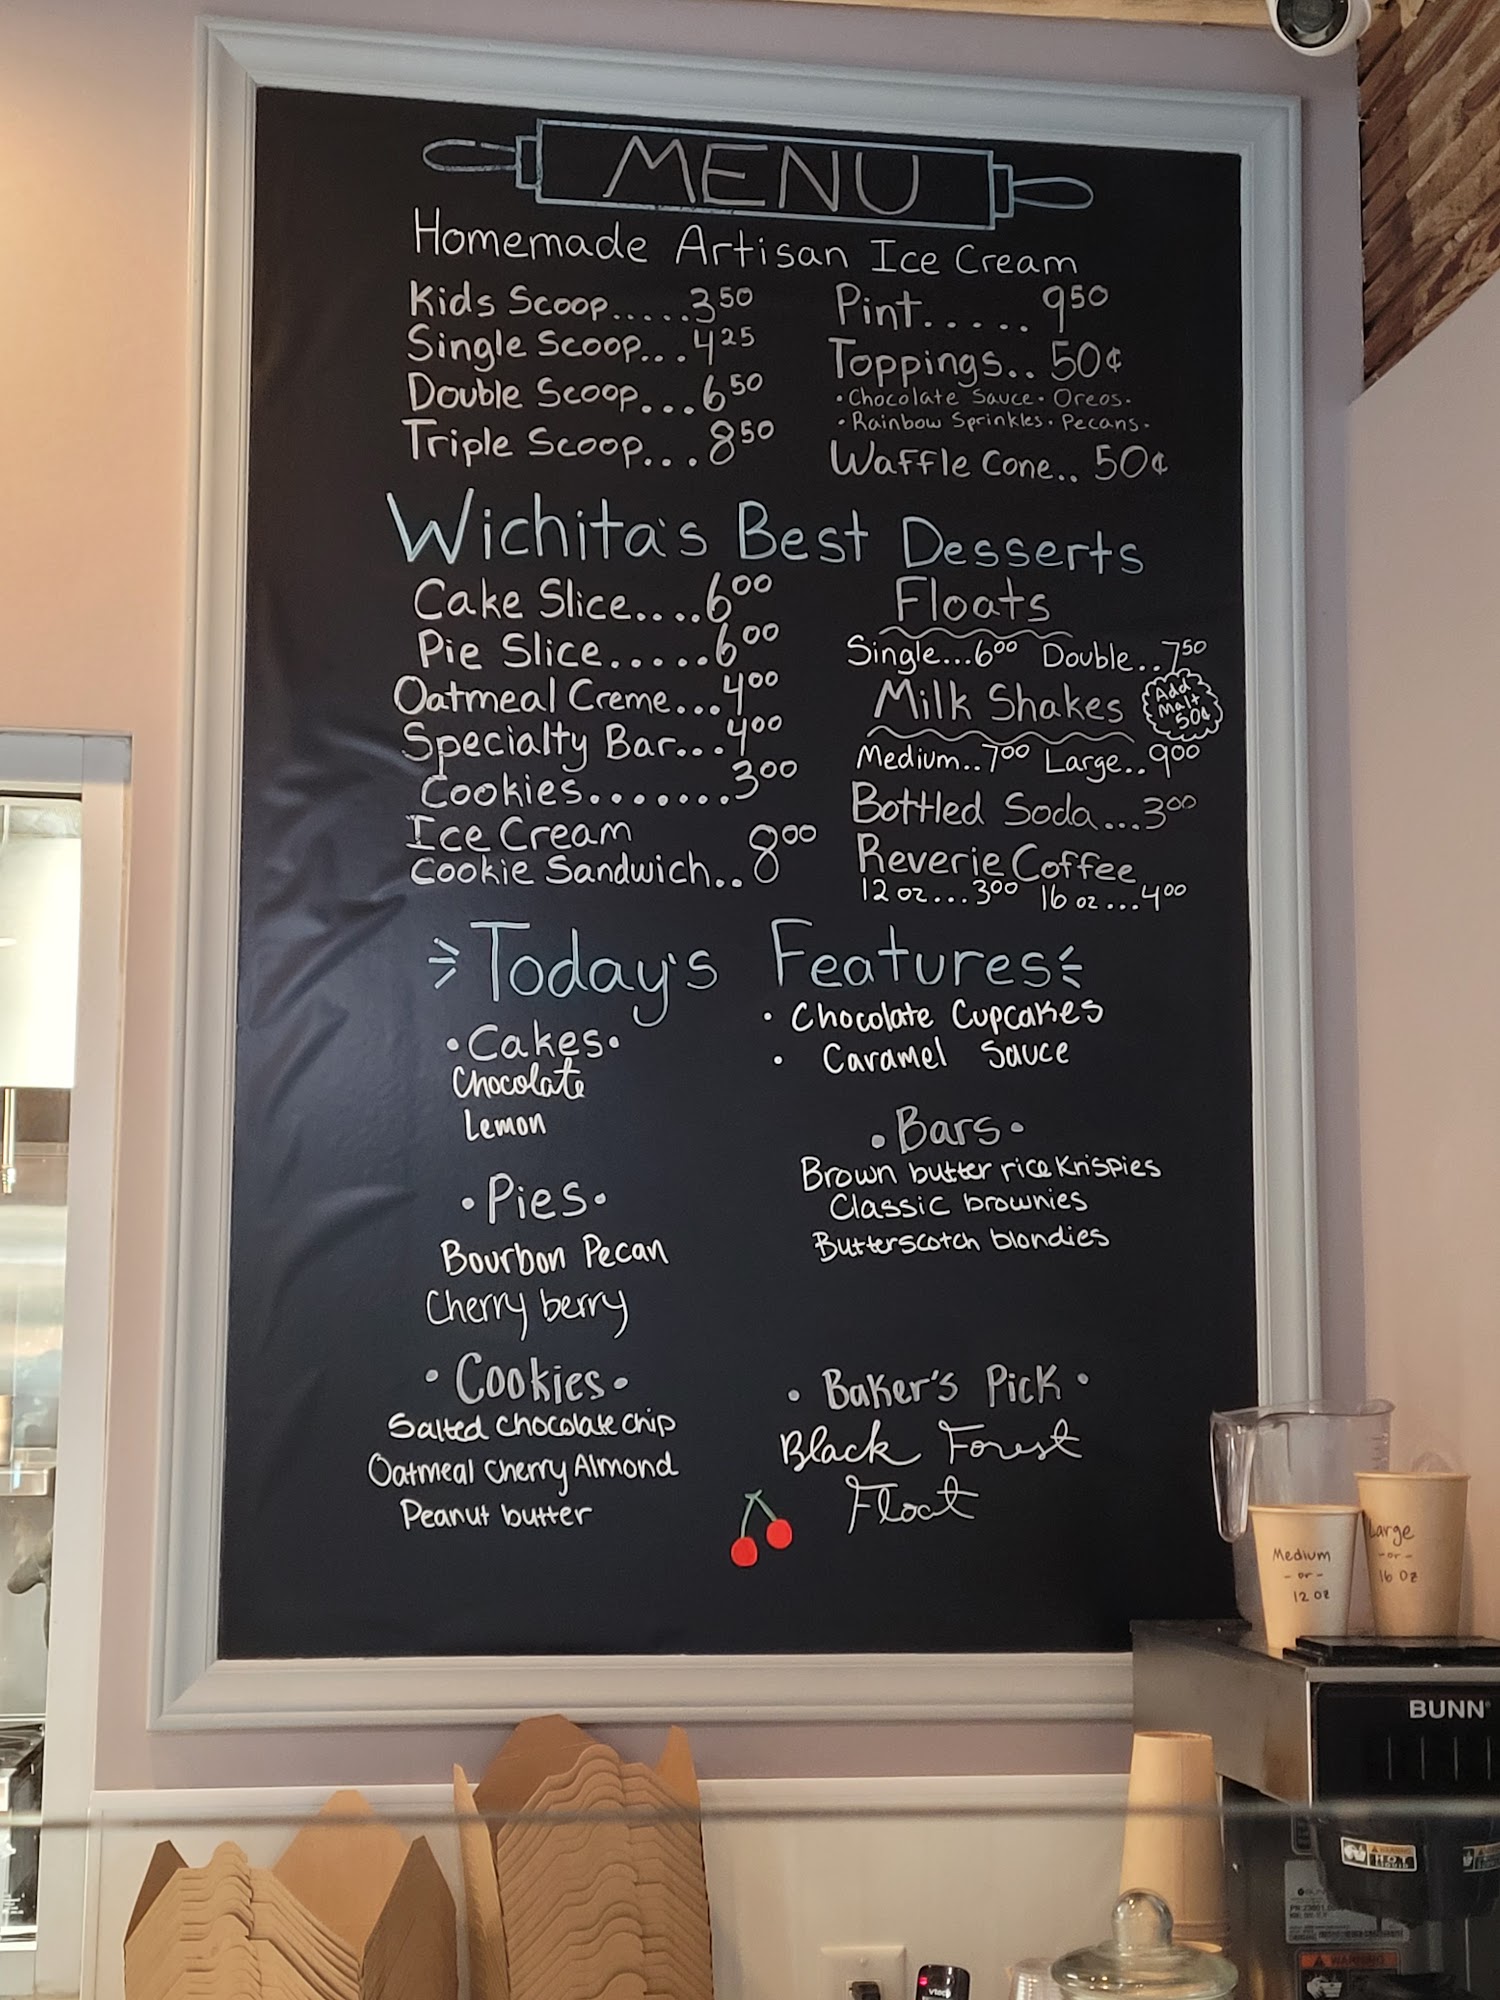 MENU
Homemade Artisan Ice Cream
Kids Scoop.....3 50
Single Scoop...4 25
Double Scoop...6 50
Triple Scoop...8 50
Pint..... 9 50
Toppings.. 50¢
•Chocolate Sauce• Oreos•
•Rainbow Sprinkles• Pecans•
Waffle Cone.. 50¢
Wichita's Best Desserts
Cake Slice....6 00
Pie Slice.....6 00
Oatmeal Creme...4 00
Specialty Bar...4 00
Cookies.......3 00
Ice Cream
Cookie Sandwich.. 8 00
Floats
Single...6 00 Double..7 50
Milk Shakes
Add
Malt
50¢
Medium..7 00 Large..9 00
Bottled Soda...3 00
Reverie Coffee
12 oz...3 00 16 oz...4 00
Today's Features
•Cakes•
Chocolate
Lemon
•Pies•
Bourbon Pecan
Cherry berry
•Cookies•
Salted chocolate chip
Oatmeal Cherry Almond
Peanut butter
• Chocolate Cupcakes
• Caramel Sauce
•Bars•
Brown butter rice Krispies
Classic brownies
Butterscotch blondies
• Baker's Pick •
Black Forest
Float
Medium
-or-
12 oz
Large
-or-
16 oz
BUNN
WARNING
HOT
WARNING
vtech